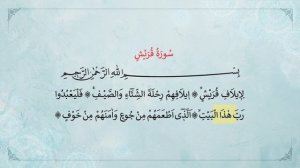 سُورَةُ قُرَيْشٍ
بِسْمِ اللَّهِ الرَّحْمَٰنِ الرَّحِيمِ
لِإِيلَافِ قُرَيْشٍ ۞ إِيلَافِهِمْ رِحْلَةَ الشِّتَاءِ وَالصَّيْفِ ۞ فَلْيَعْبُدُوا
رَبَّ هَٰذَا الْبَيْتِ ۞ الَّذِي أَطْعَمَهُمْ مِنْ جُوعٍ وَآمَنَهُمْ مِنْ خَوْفٍ ۞